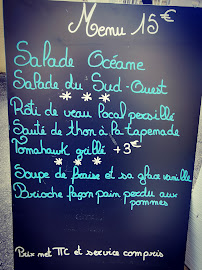 Menu 15€
Salade Océane
Salade du Sud-Ouest
* * *
Rôti de veau Pocal persillé
Sauté de thon à la tapenade
Tomahawk grillé +3€
* * *
Soupe de fraise et sa glace vanille
Brioche façon pain perdu aux
pommes
Prix net TTC et service compris